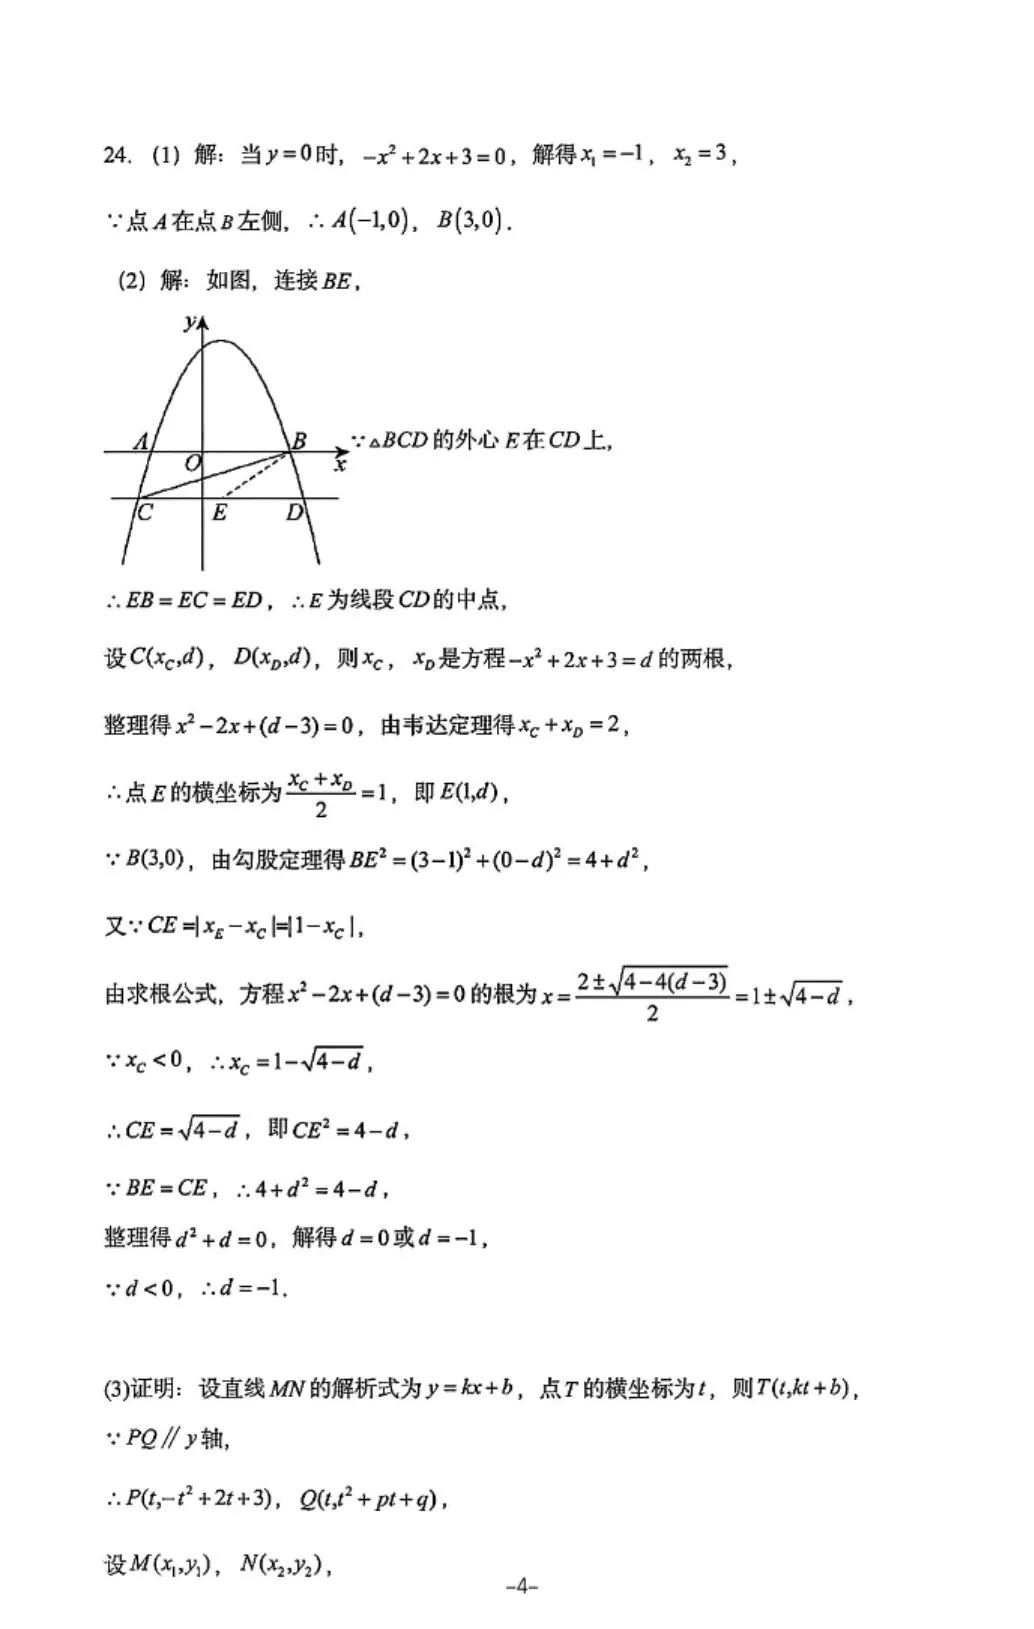 24. (1) 解：当 y=0 时，-x²+2x+3=0，解得 x₁=-1，x₂=3，
∵点 A 在点 B 左侧，∴ A(-1,0)，B(3,0)．
(2) 解：如图，连接 BE，
y
A
B
O
x
C
E
D
∵△BCD 的外心 E 在 CD 上，
∴EB=EC=ED，∴E 为线段 CD 的中点，
设 C(x_C,d)，D(x_D,d)，则 x_C，x_D 是方程 -x²+2x+3=d 的两根，
整理得 x²-2x+(d-3)=0，由韦达定理得 x_C+x_D=2，
∴点 E 的横坐标为 (x_C+x_D)/2=1，即 E(1,d)，
∵B(3,0)，由勾股定理得 BE²=(3-1)²+(0-d)²=4+d²，
又∵CE=|x_E-x_C|=|1-x_C|，
由求根公式，方程 x²-2x+(d-3)=0 的根为 x=(2±√(4-4(d-3)))/2=1±√(4-d)，
∵x_C<0，∴x_C=1-√(4-d)，
∴CE=√(4-d)，即 CE²=4-d，
∵BE=CE，∴4+d²=4-d，
整理得 d²+d=0，解得 d=0 或 d=-1，
∵d<0，∴d=-1．
(3)证明：设直线 MN 的解析式为 y=kx+b，点 T 的横坐标为 t，则 T(t,kt+b)，
∵PQ∥y 轴，
∴P(t,-t²+2t+3)，Q(t,t²+pt+q)，
设 M(x₁,y₁)，N(x₂,y₂)，
-4-